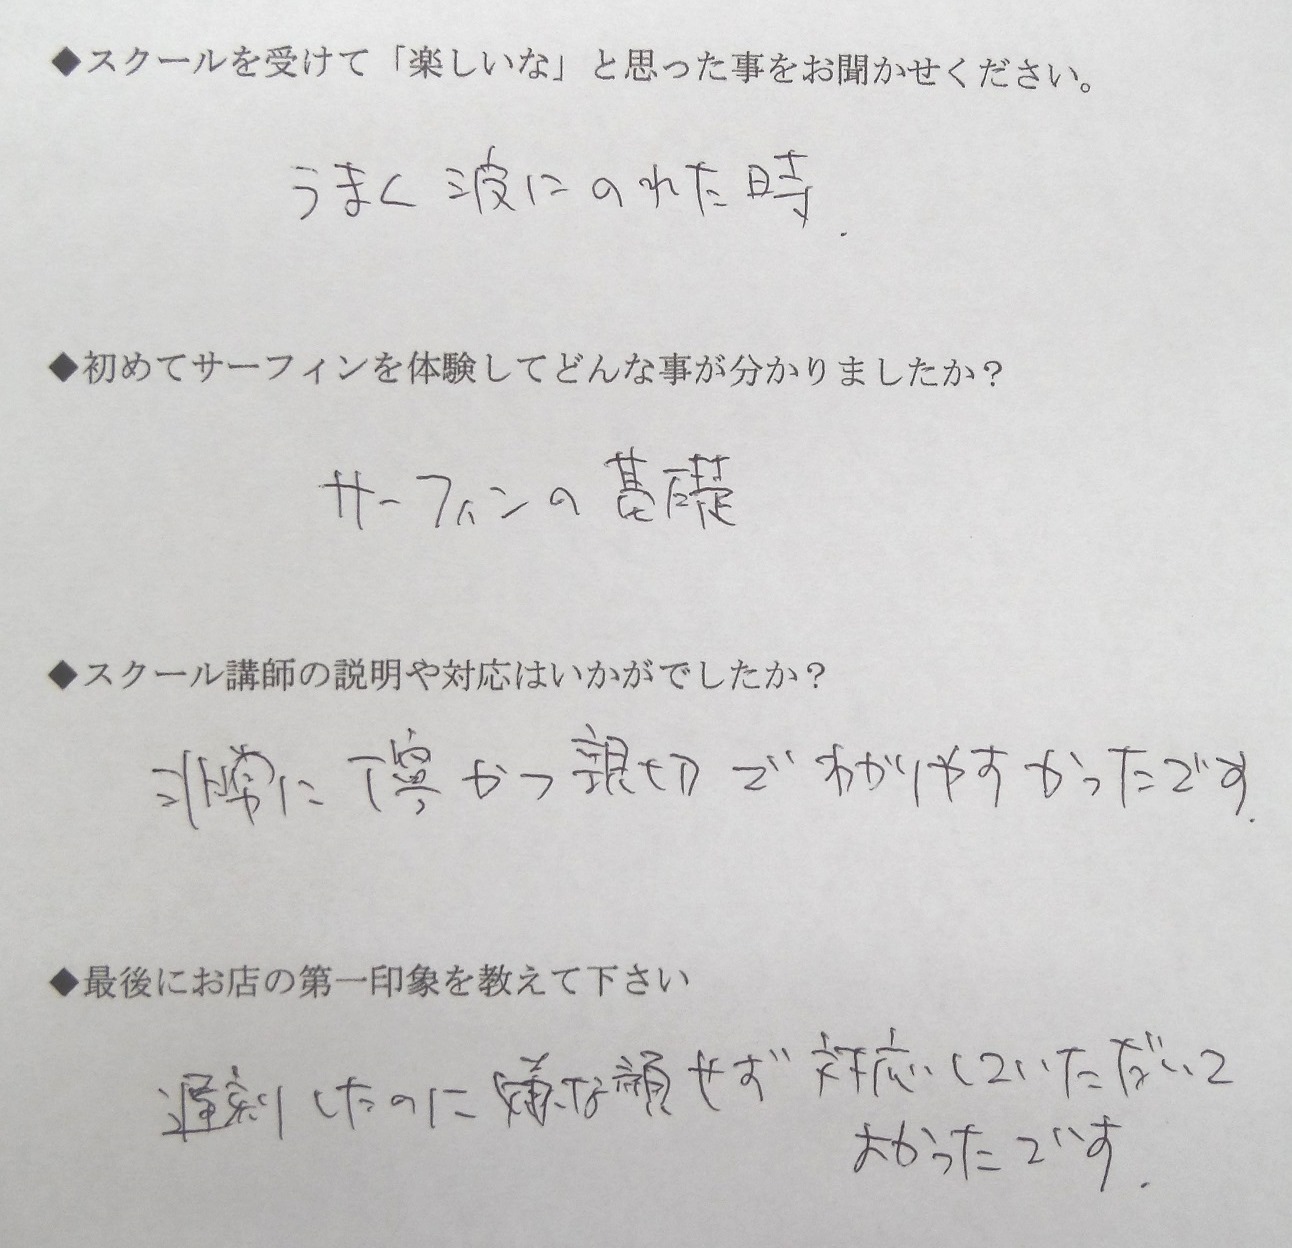 ◆スクールを受けて「楽しいな」と思った事をお聞かせください。
うまく波にのれた時.
◆初めてサーフィンを体験してどんな事が分かりましたか？
サーフィンの基礎
◆スクール講師の説明や対応はいかがでしたか？
非常に丁寧かつ親切でわかりやすかったです.
◆最後にお店の第一印象を教えて下さい
遅刻したのに嫌な顔せず対応していただいて
よかったです.